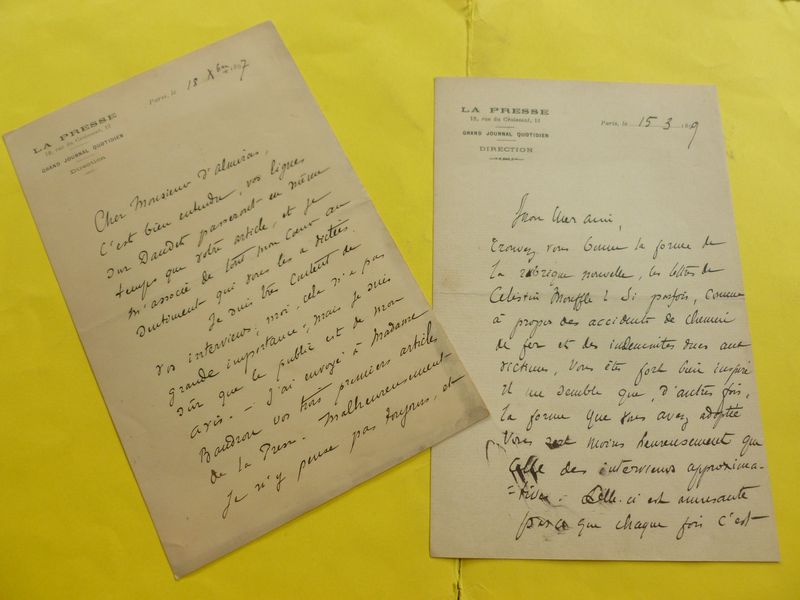 LA PRESSE
12, rue du Croissant, 12
GRAND JOURNAL QUOTIDIEN
DIRECTION
Paris, le 18 Xbre 1897
Cher Monsieur d'Almeras,
C'est bien entendu, vos lignes
sur Daudet passeront en même
temps que votre article, et je
m'associe de tout mon cœur au
sentiment qui vous les a dictées.
Je suis très content de
vos interviews; moi, cela n'a pas
grande importance; mais je suis
sûr que le public est de mon
avis. – J'ai envoyé à Madame
vos trois premiers articles
de la Presse. Malheureusement
je n'y pense pas toujours, et
LA PRESSE
12, rue du Croissant, 12
GRAND JOURNAL QUOTIDIEN
DIRECTION
Paris, le 15 3 1899
Mon cher ami,
Trouvez vous bonne la forme de
la rubrique nouvelle, les lettres de
Celestin Mouffle? Si parfois, comme
à propos des accidents de chemin
de fer et des indemnités dues aux
victimes, vous êtes fort bien inspiré
il me semble que, d'autres fois,
la forme que vous avez adoptée
vous est moins heureusement que
celle des interviews approxima-
-tives. Celle-ci est amusante
parce que chaque fois c'est